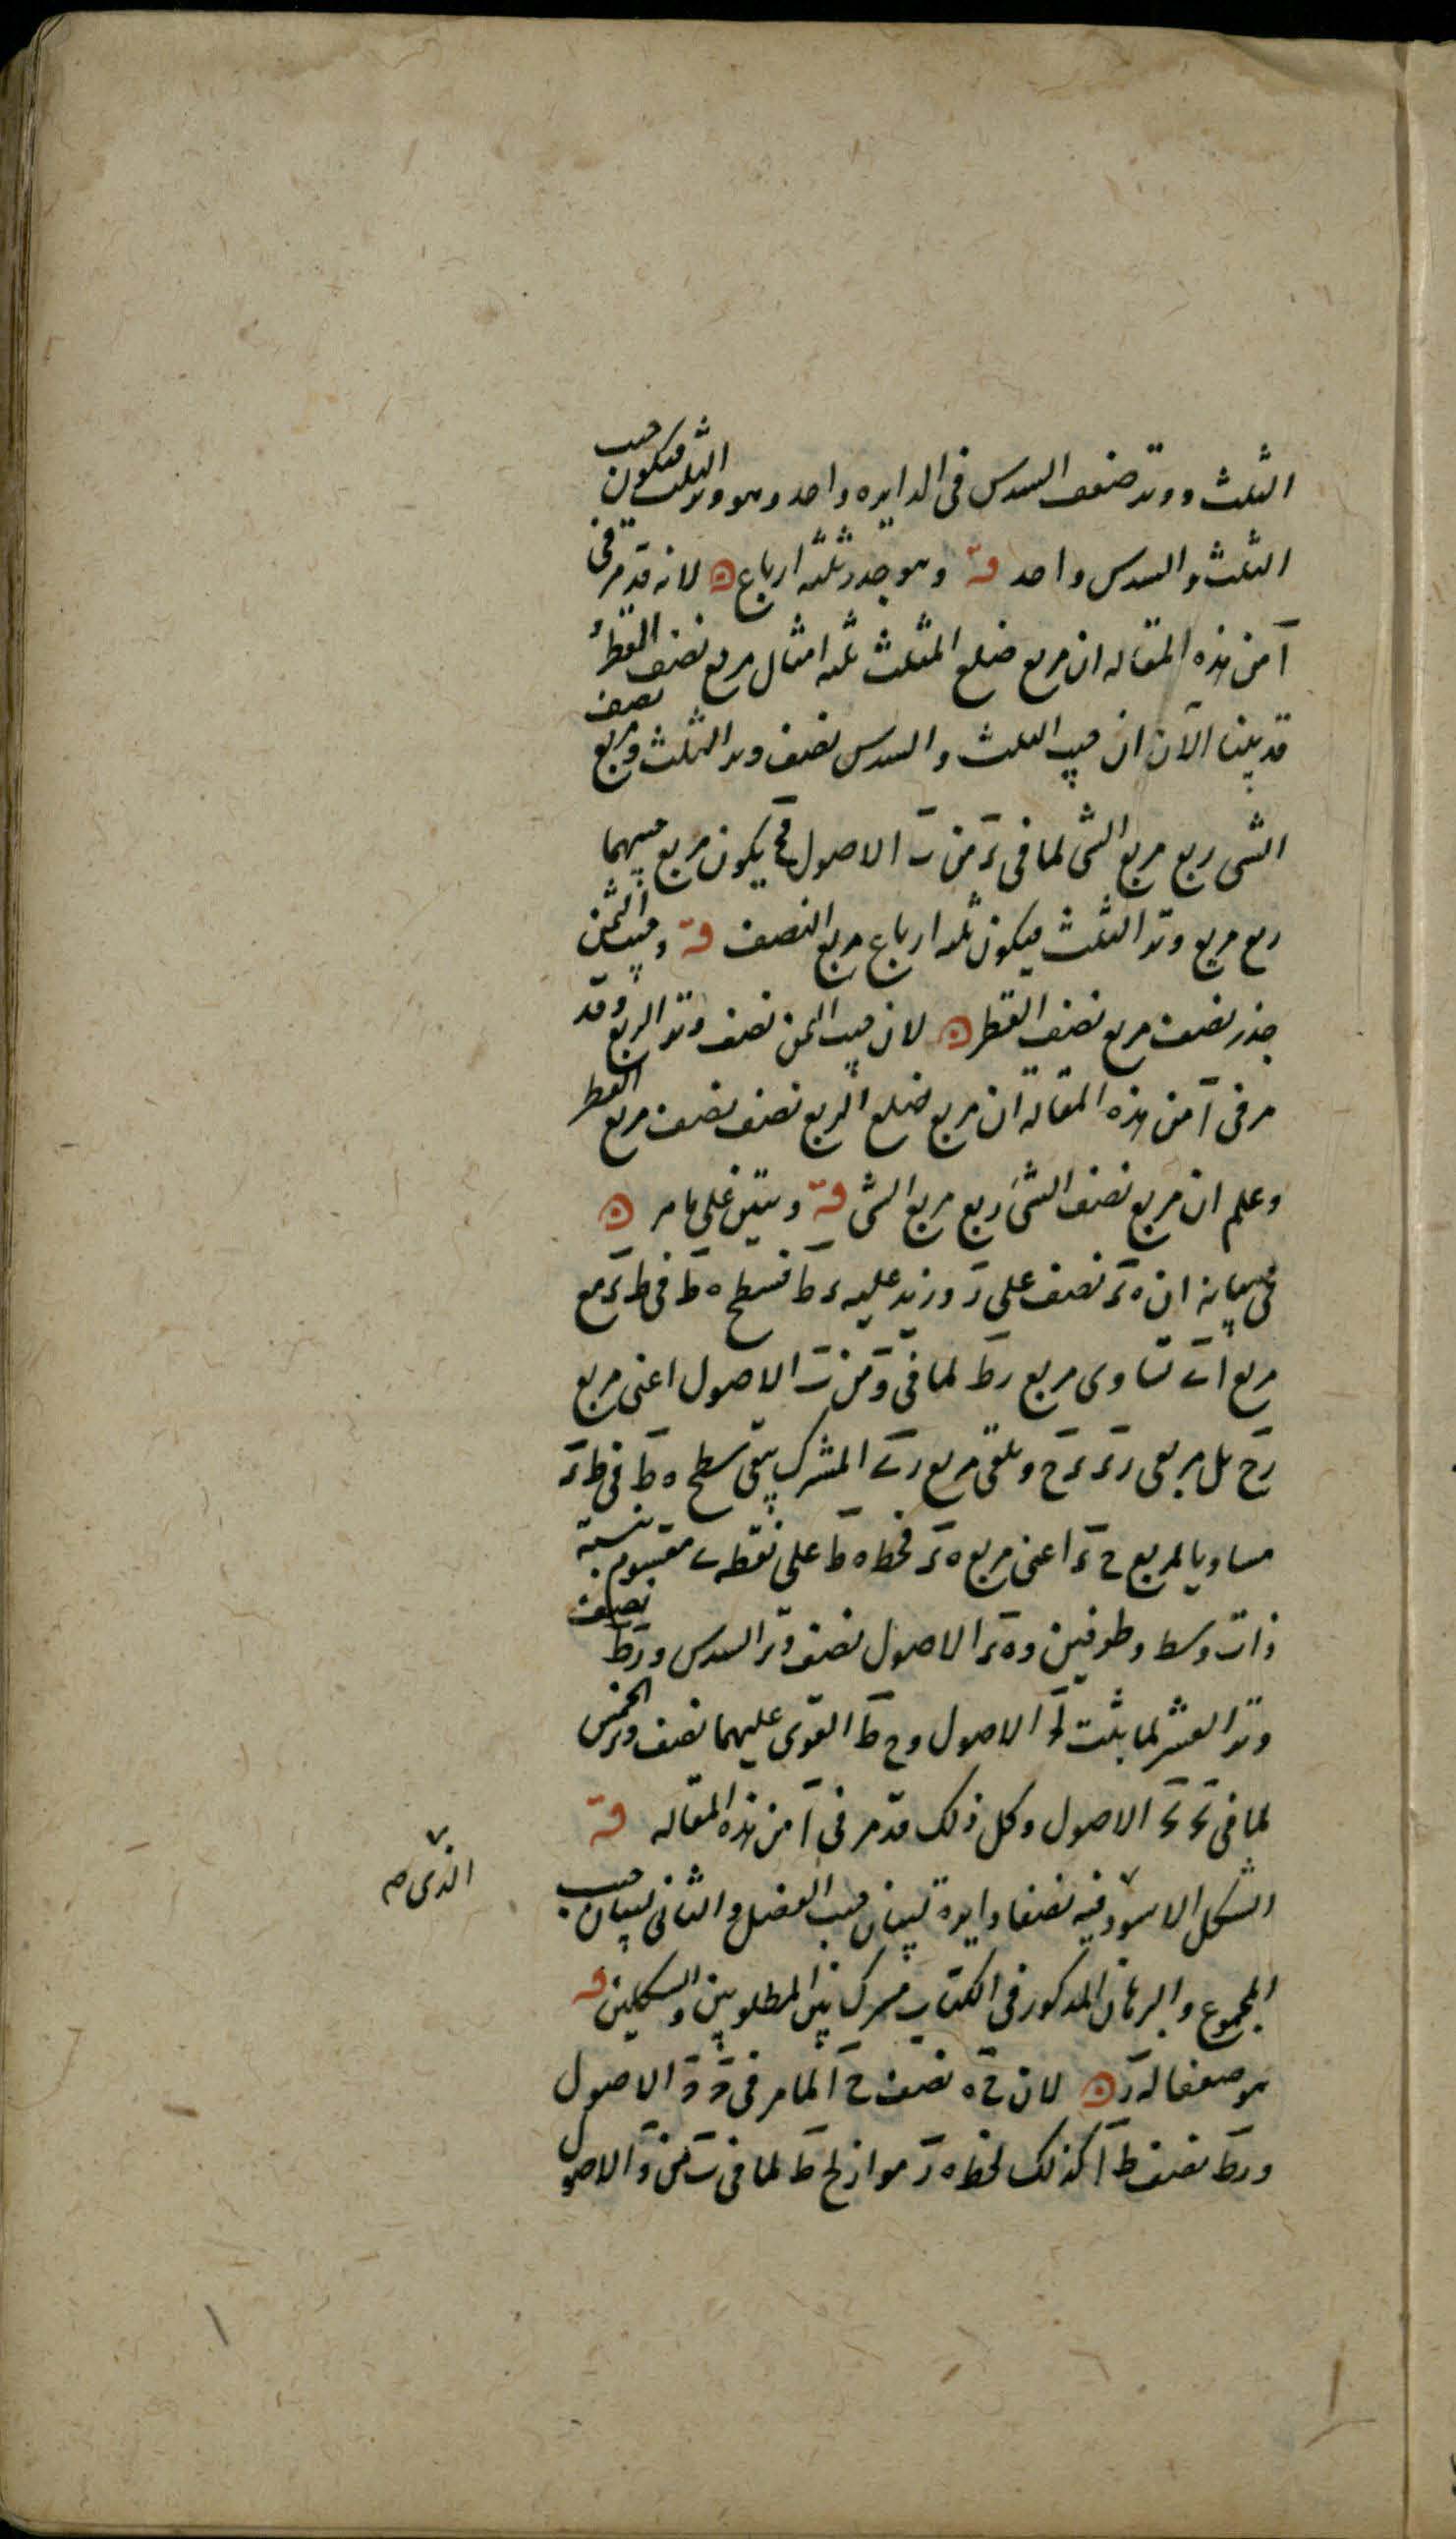 الثلث ووتد ضعف السدس فى الدايره واحد وهو وتر الثلث فيكون جيب
الثلث والسدس واحد قه وهو جذر ثلثه ارباع ن لانه قد مر فى
آ من هذه المقاله ان مربع ضلع المثلث ثلثه امثال مربع نصف القطر و
قد بينا الآن ان جيب الثلث والسدس نصف وتر الثلث ومربع نصف
الشى ربع مربع الشى لما فى ء من ب الاصول فح يكون مربع جيبهما
ربع مربع وتر الثلث فيكون ثلثه ارباع مربع النصف قه وجيب الثمن
جذر نصف مربع نصف القطر ن لان جيب الثمن نصف وتر الربع وقد
مر فى آ من هذه المقاله ان مربع ضلع المربع نصف نصف مربع القطر
وعلم ان مربع نصف الشئ ربع مربع الشى قه وستين على ما مر ن
فى بيانه ان ه ء نصف على ر وزيد عليه ء ط فسطح ه ط فى ط ء مع
مربع ر ء تساوى مربع ر ط لما فى و من ب الاصول اعنى مربع
ر ح بل مربعى ر ء ء ح ونلقى مربع ر ء المشترك يبقى سطح ه ط فى ط ء
مساويا لمربع ح ء اعنى مربع ه ء فخط ه ط على نقطه ء مقسوم بنسبة
ذات وسط وطرفين و ه ء الاصول نصف وتر السدس و ر ط نصف
وتر العشر لما ثبت الاصول و ح ط القوى عليهما نصف وتر الخمس
لما فى الاصول وكل ذلك قد مر فى آ من هذه المقاله قه
الشكل الاسود فيه نصفا دايرة لبيان جيب الفضل والثانى لبيان جيب
الذى صه
المجموع والبرهان المذكور فى الكتاب مشترك بين المطلوبين والشكلين قه
هو ضعفا له ر ن لان ح ه نصف ح آ لما مر فى الاصول
و ر ط نصف ط آ كذلك فخط ه ر مواز لح ط لما فى ب من و الاصول